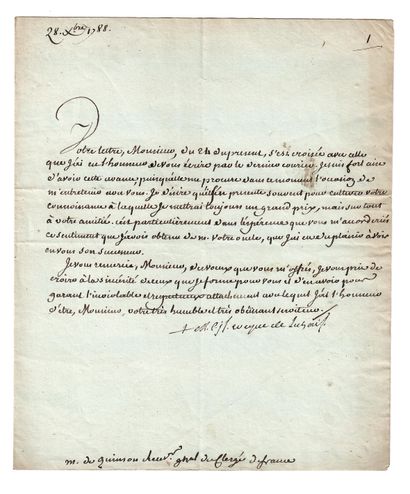 28. Xbre 1788.
1
Votre lettre, Monsieur, du 24 du present, s'est croisée avec celle
que j'ai eu l'honneur de vous écrire par le dernier courier. Je suis fort aise
d'avoir cette avance, puisqu'elle me procure dans ce moment l'occasion de
m'entretenir avec vous. Je désire qu'elle se presente souvent pour cultiver votre
connoissance à laquelle je mettrai toujours un grand prix, mais sur tout
à votre amitié. c'est particulierement dans l'espérence que vous m'accorderiés
ce sentiment que j'avois obtenu de m. votre oncle, que j'ai eu du plaisir à voir
en vous son successeur.
Je vous remercie, Monsieur, des voeux que vous m'offrés, je vous prie de
croire à la sincérité de ceux que je forme pour vous et d'en avoir pour
garant l'inviolable et respectueux attachement avec lequel j'ai l'honneur
d'être, Monsieur, votre très humble et très obéissant serviteur
+ eveque de
m. de quinson Recevr. gnal du Clergé de france